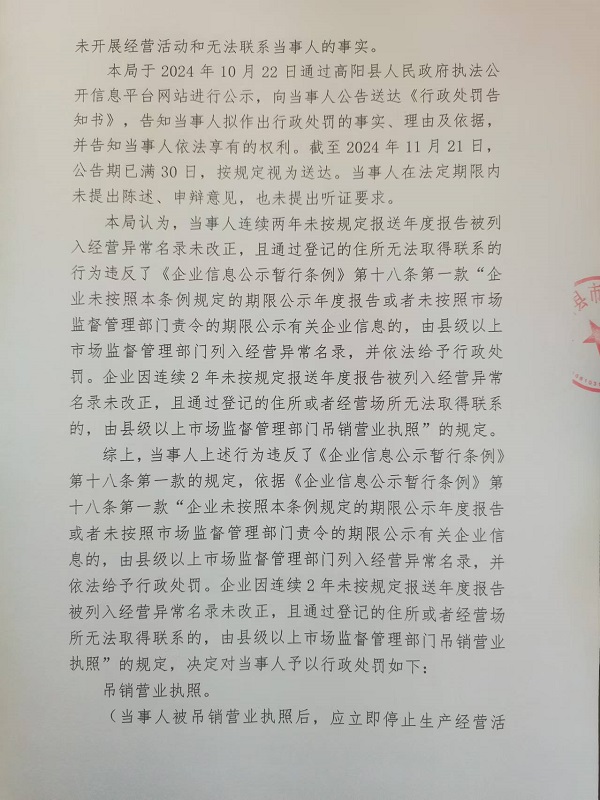 未开展经营活动和无法联系当事人的事实。
本局于2024年10月22日通过高阳县人民政府执法公
开信息平台网站进行公示，向当事人公告送达《行政处罚告
知书》，告知当事人拟作出行政处罚的事实、理由及依据，
并告知当事人依法享有的权利。截至2024年11月21日，
公告期已满30日，按规定视为送达。当事人在法定期限内
未提出陈述、申辩意见，也未提出听证要求。
本局认为，当事人连续两年未按规定报送年度报告被列
入经营异常名录未改正，且通过登记的住所无法取得联系的
行为违反了《企业信息公示暂行条例》第十八条第一款“企
业未按照本条例规定的期限公示年度报告或者未按照市场
监督管理部门责令的期限公示有关企业信息的，由县级以上
市场监督管理部门列入经营异常名录，并依法给予行政处
罚。企业因连续2年未按规定报送年度报告被列入经营异常
名录未改正，且通过登记的住所或者经营场所无法取得联系
的，由县级以上市场监督管理部门吊销营业执照”的规定。
综上，当事人上述行为违反了《企业信息公示暂行条例》
第十八条第一款的规定，依据《企业信息公示暂行条例》第
十八条第一款“企业未按照本条例规定的期限公示年度报告
或者未按照市场监督管理部门责令的期限公示有关企业信
息的，由县级以上市场监督管理部门列入经营异常名录，并
依法给予行政处罚。企业因连续2年未按规定报送年度报告
被列入经营异常名录未改正，且通过登记的住所或者经营场
所无法取得联系的，由县级以上市场监督管理部门吊销营业
执照”的规定，决定对当事人予以行政处罚如下：
吊销营业执照。
（当事人被吊销营业执照后，应立即停止生产经营活
县市